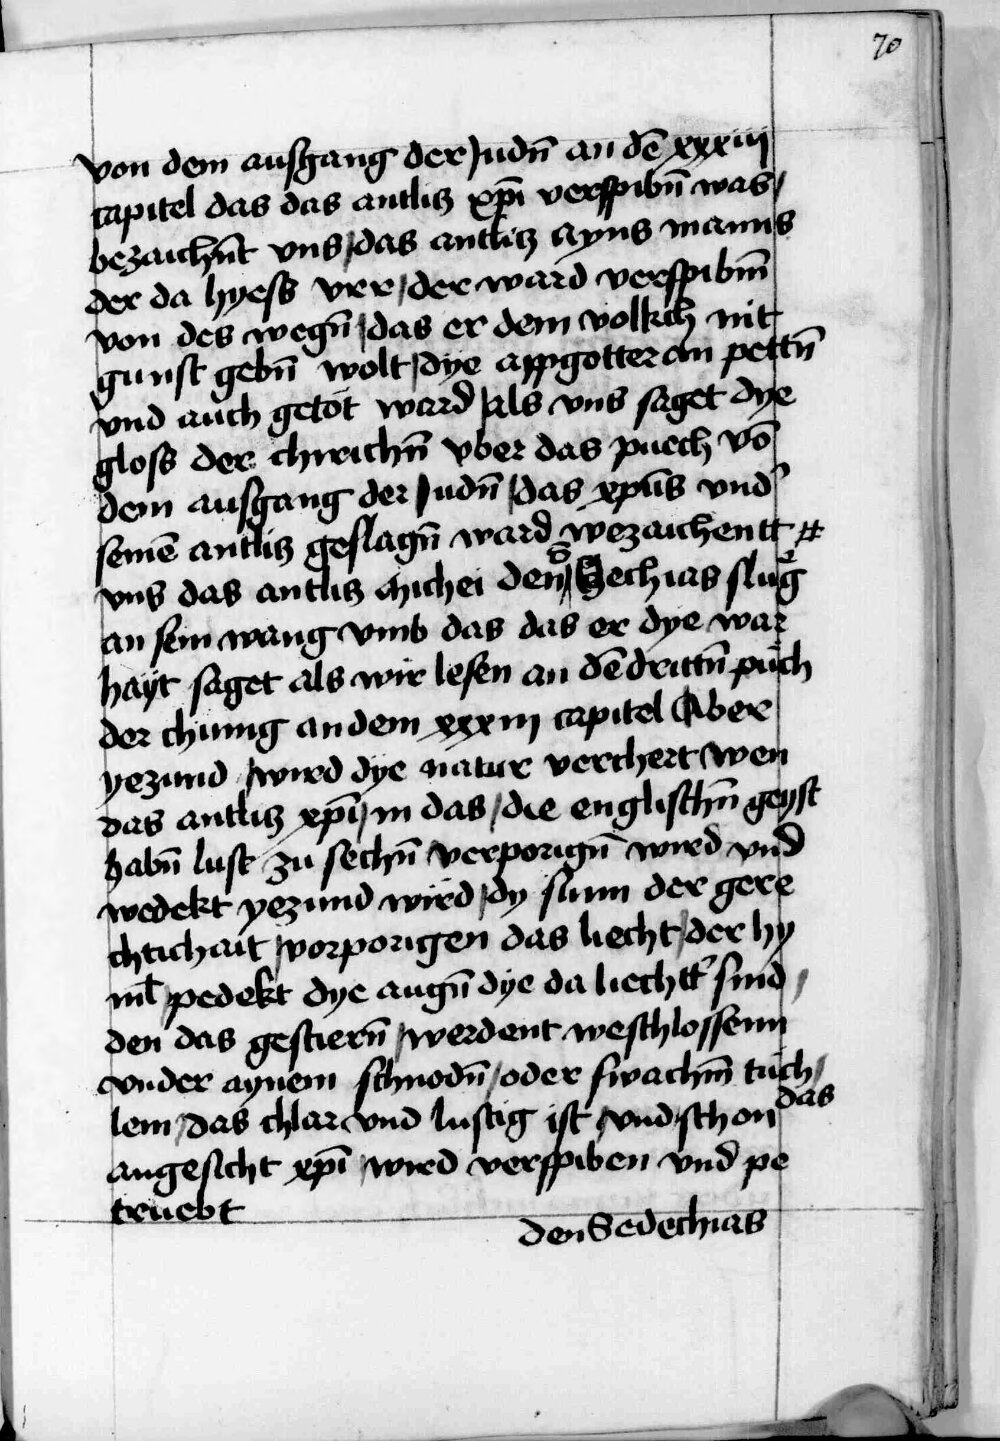 70
von dem ausgang der Judn̄ an dē xxxiij
capitel das das antlitz xp̄i verspibn̄ was /
bezaichn̄t vns / das antlitz ayns manns
der da hyess vrr / der ward verspibm̄
von des wegn̄ / das er dem volkch nit
gunst gebn̄ wolt / dye appgotter an pettn̄
vnd auch getöt ward / als vns saget dye
gloss der chrichn̄ vber das puech vō
dem ausgang der Judn̄ / das xp̄us vnd'
seinē antlitz geslagn̄ ward wezaichentt #
vns das antlitz michei den Sechias slug
an sein wang vmb das das er dye war
hayt saget als wir lesen an dē drittn̄ puch
der chunig an dem xxxiij capitel Aber
yezund / wird dye natur verchert wen
das antlitz xp̄i / in das / die englischn̄ geyst
habn̄ lust zu sechn̄ / verporign̄ wird vnd
wedekt yezund wird / dy sunn der gere
chtichait / vorporigen das liecht / der hy
ml̄ / pedekt dye augn̄ dye da liechtt' sind /
den das gestiern̄ / werdent weschlossenn
vnder aynem schnodn̄ / oder swachm̄ tüch /
lem / das chlar vnd lustig ist / vnd schon das
angesicht xp̄i / wird verspiben vnd pe
truebt
den Sedechias